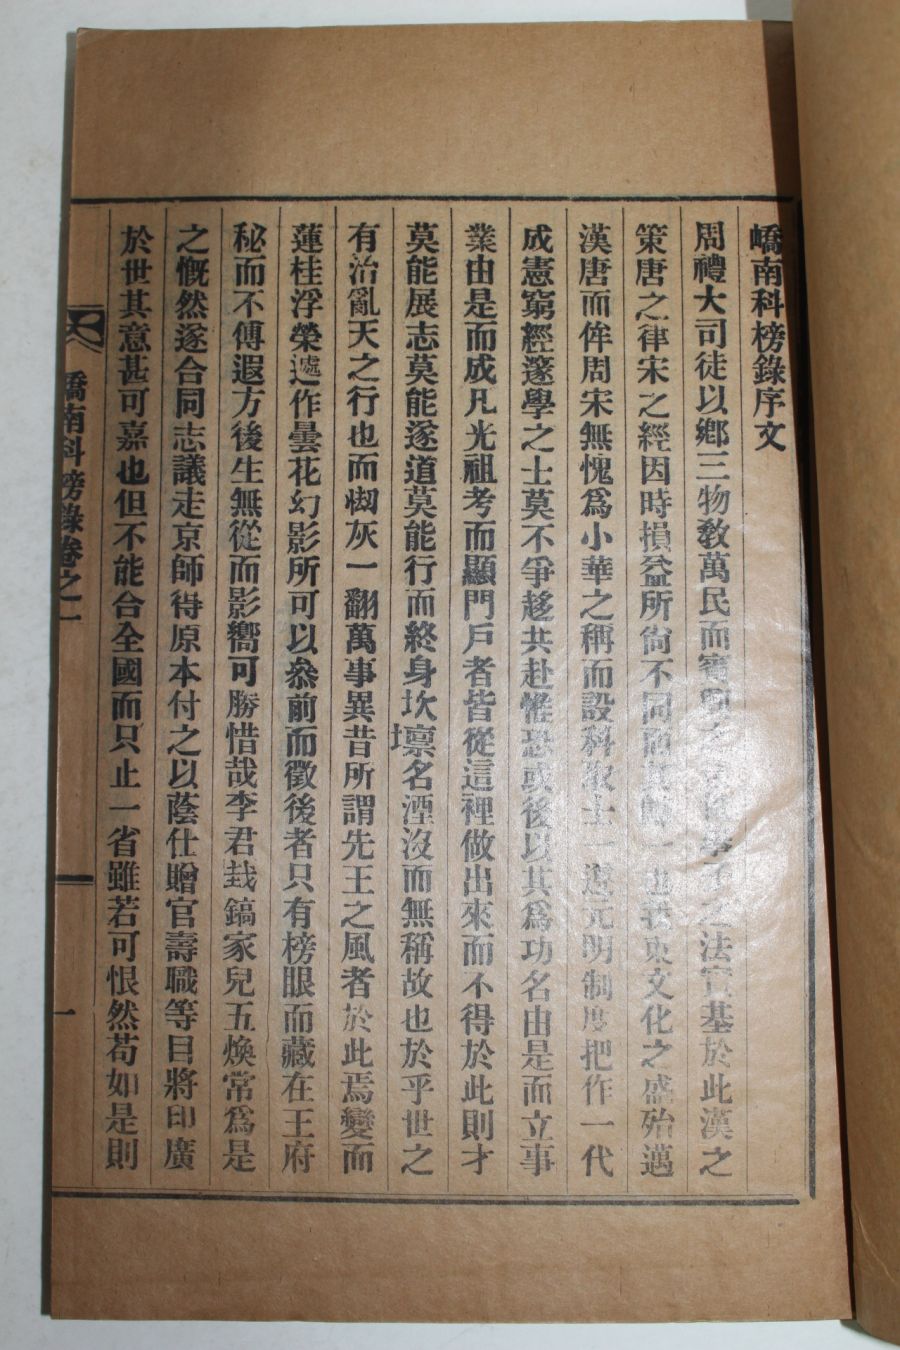 嶠南科榜錄序文
周禮大司徒以鄉三物敎萬民而賓興之法實基於此漢之
策唐之律宋之經因時損益所尙不同而其歸一也我東文化之盛殆邁
漢唐而侔周宋無愧爲小華之稱而設科取士一遵元明制度把作一代
成憲窮經邃學之士莫不爭趍共赴惟恐或後以其爲功名由是而立事
業由是而成凡光祖考而顯門戶者皆從這裡做出來而不得於此則才
莫能展志莫能遂道莫能行而終身坎壈名湮沒而無稱故也於乎世之
有治亂天之行也而刼灰一翻萬事異昔所謂先王之風者於此焉變而
蓮桂浮榮遽作曇花幻影所可以叅前而徵後者只有榜眼而藏在王府
秘而不傳遐方後生無從而影嚮可勝惜哉李君䤡鎬家兒五煥常爲是
之慨然遂合同志議走京師得原本付之以蔭仕贈官壽職等目將印廣
於世其意甚可嘉也但不能合全國而只止一省雖若可恨然苟如是則
嶠南科榜錄卷之一
一